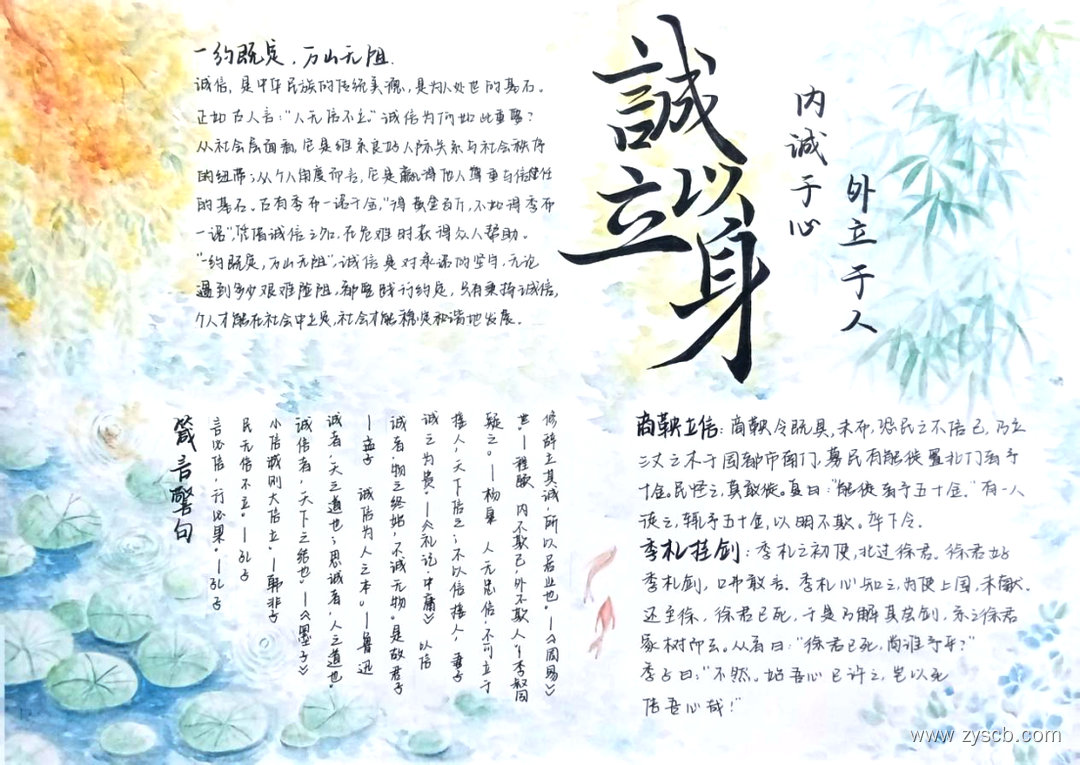 一约既定，万山无阻.
诚信，是中华民族的传统美德，是为人处世的基石。
正如古人言："人无信不立"诚信为何如此重要？
从社会层面看，它是维系良好人际关系与社会秩序
的纽带；从个人角度而言，它是赢得他人尊重与信任
的基石。古有季布一诺千金，"得黄金百斤，不如得季布
一诺"，凭借诚信之名，在危难时获得众人帮助。
"一约既定，万山无阻"，诚信是对承诺的坚守，无论
遇到多少艰难险阻，都要践行约定，只有秉持诚信，
个人才能在社会中立足，社会才能稳定和谐地发展。
誠以
立身
内诚于心
外立于人
商鞅立信：商鞅令既具，未布，恐民之不信己，乃立
三丈之木于国都市南门，募民有能徙置北门者予
十金。民怪之，莫敢徙。复曰："能徙者予五十金。"有一人
徙之，辄予五十金，以明不欺。卒下令.
季札挂剑：季札之初使，北过徐君。徐君好
季札剑，口弗敢言。季札心知之，为使上国，未献.
还至徐，徐君已死，于是乃解其宝剑，系之徐君
冢树而去。从者曰："徐君已死，尚谁予乎？"
季子曰："不然。始吾心已许之，岂以死
倍吾心哉！"
修辞立其诚，所以居业也。—《周易》
—程颐 内不欺己，外不欺人—李叔同
疑之。—杨泉 人无忠信，不可立于
接人，天下信之；不以信接人，妻子
诚之为贵。—《礼记·中庸》 以信
诚者，物之终始，不诚无物。是故君子
—孟子 诚信为人之本。—鲁迅
诚者，天之道也；思诚者，人之道也。
诚信者，天下之结也。—《墨子》
小信诚则大信立。—韩非子
民无信不立。—孔子
言必信，行必果。—孔子
箴言警句
www.zyscb.com